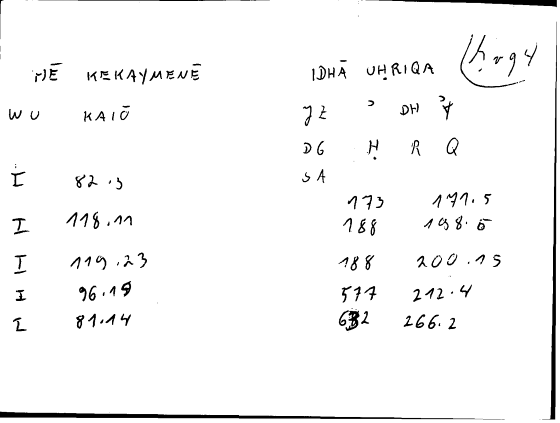 ḥrq4
MĒ KEKAYMENĒ IDHĀ UḤRIQA
WU KAIŌ JZ ʾ DH Ɂ
DG Ḥ R Q
I 82.3 SA
173 171.5
I 118.11 188 198.5
I 119.23 188 200.15
I 96.19 577 212.4
I 81.14 266.2